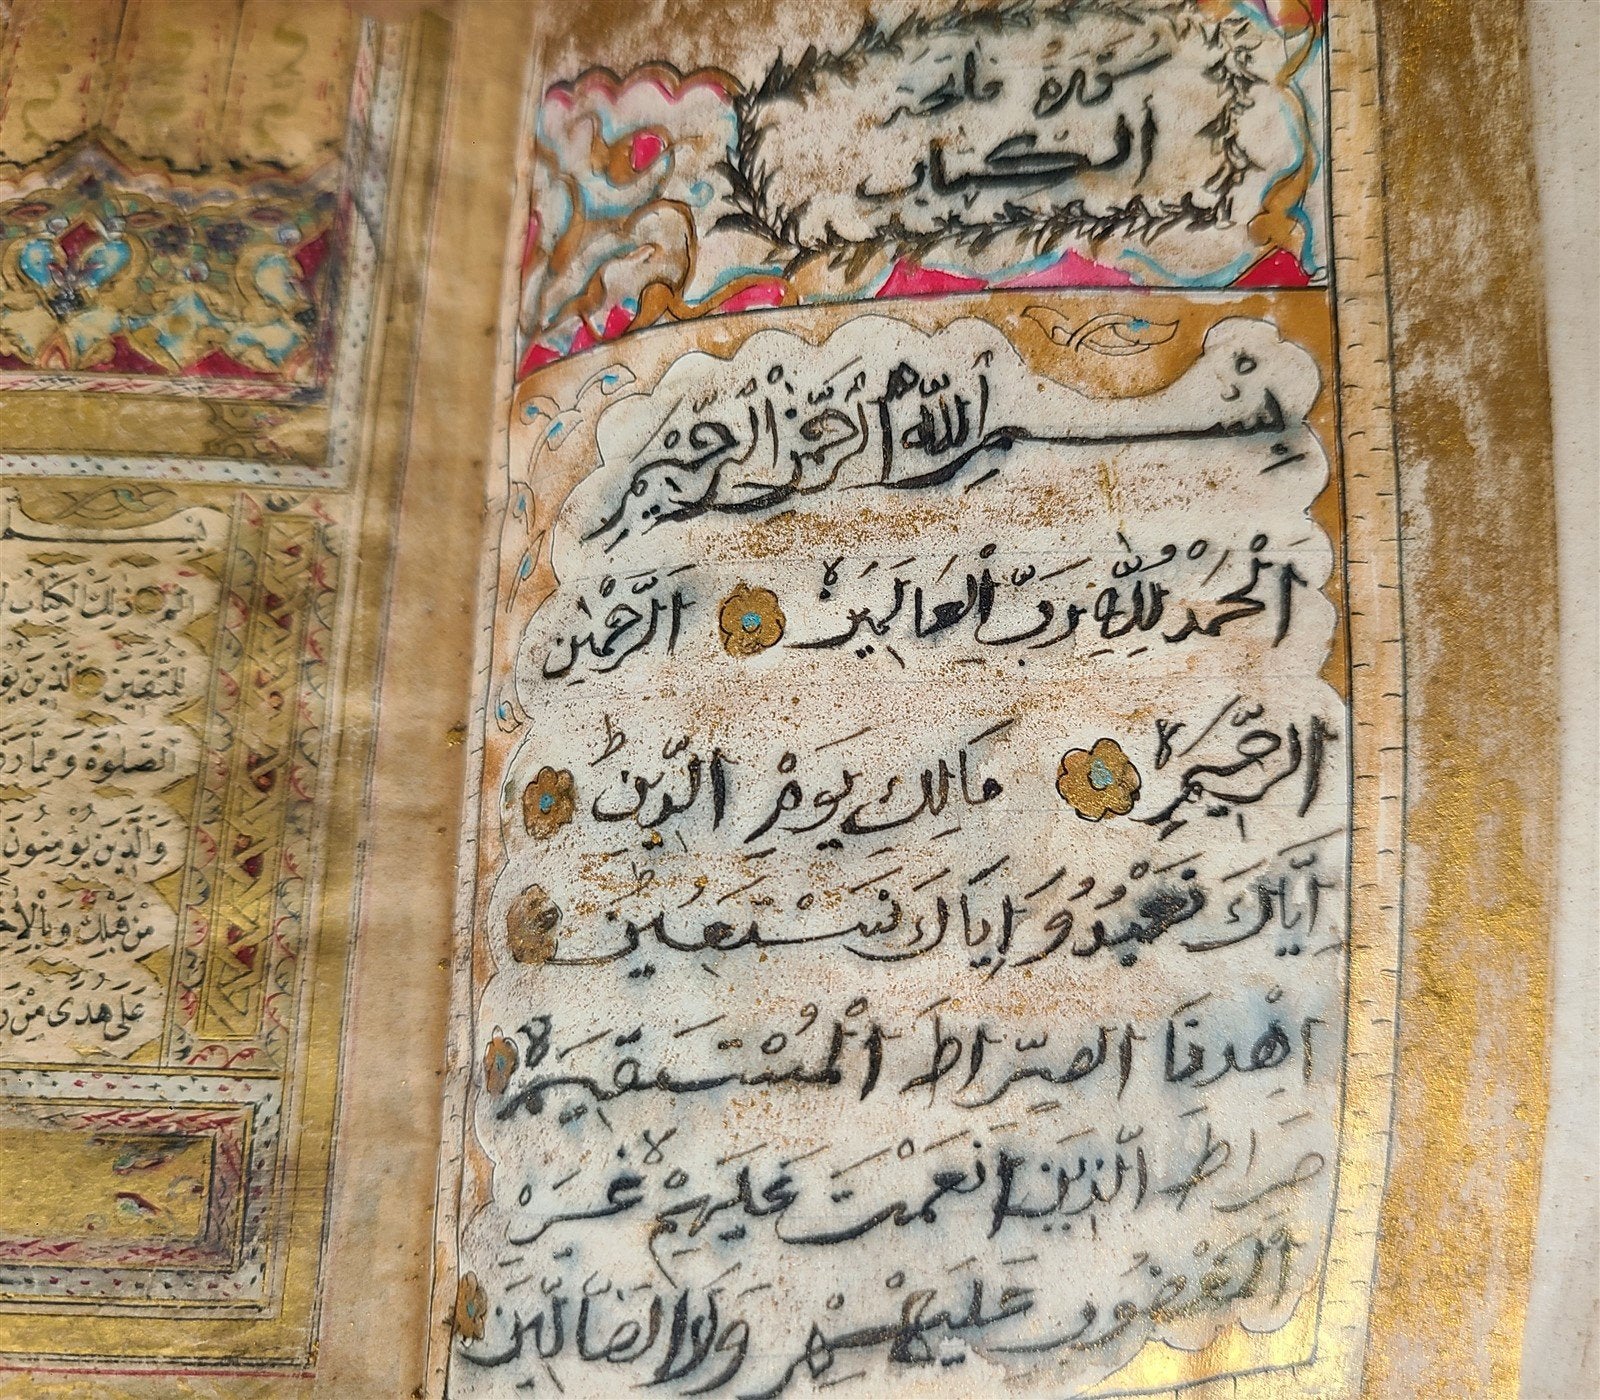 سورة فاتحة
الكتاب
بِسْمِ اللَّهِ الرَّحْمٰنِ الرَّحِيْمِ
اَلْحَمْدُ لِلّٰهِ رَبِّ الْعَالَمِينَ ۙ الرَّحْمٰنِ
الرَّحِيمِ ۙ مَالِكِ يَوْمِ الدِّينِ ؕ
اِيَّاكَ نَعْبُدُ وَاِيَّاكَ نَسْتَعِينُ ؕ
اهْدِنَا الصِّرَاطَ الْمُسْتَقِيمَ ۙ
صِرَاطَ الَّذِينَ اَنْعَمْتَ عَلَيْهِمْ ۙ غَيْرِ
الْمَغْضُوبِ عَلَيْهِمْ وَلَا الضَّالِّينَ
بسم
الم ذٰلِكَ الْكِتَابُ
لِلْمُتَّقِينَ الَّذِينَ
الصَّلٰوةَ وَمِمَّا
وَالَّذِينَ يُؤْمِنُونَ
مِنْ قَبْلِكَ
عَلٰى هُدًى مِنْ